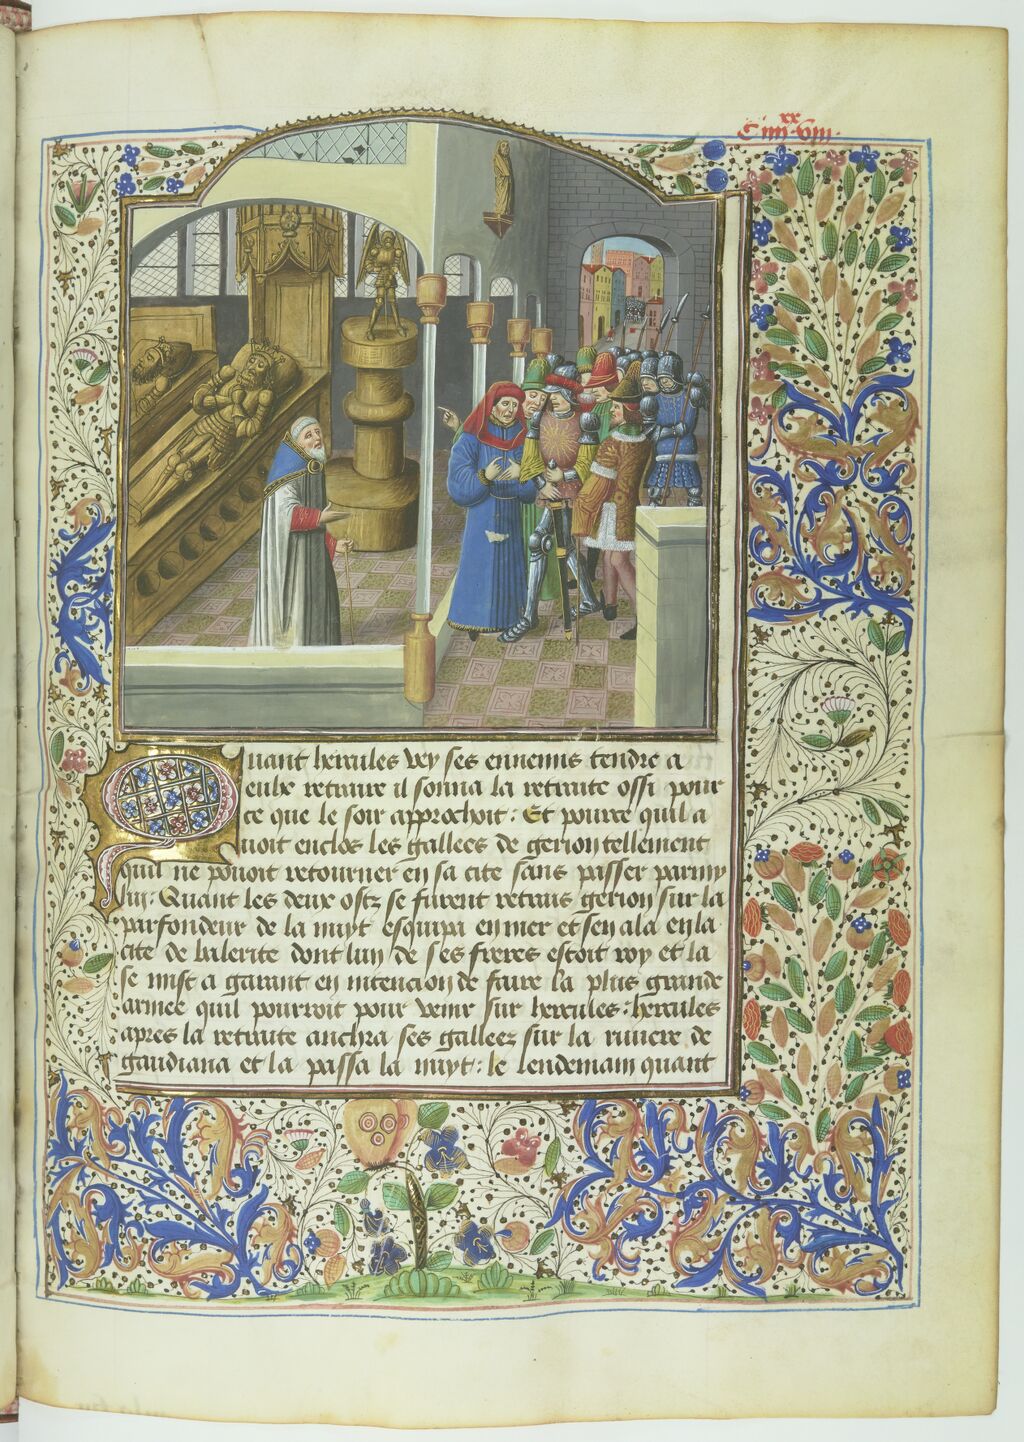 C iiii xx viii
Quant hercules vey ses ennemis tendre a
eulx retraire il sonna la retraite ossi pour
ce que le soir approchoit : Et pource quil a
uoit enclos les gallees de gerion tellement
quil ne pouoit retourner en sa cite sans passer parmy
luy : Quant les deux ostz se furent retrais gerion sur la
parfondeur de la nuyt esquipa en mer et sen ala en la
cite de valerite dont lun de ses freres estoit roy et la
se mist a garant en intencion de faire la plus grande
armee quil pourroit pour venir sur hercules : hercules
apres la retraite anchra ses galleez sur la riuiere de
gaudiana et la passa la nuyt : le lendemain quant